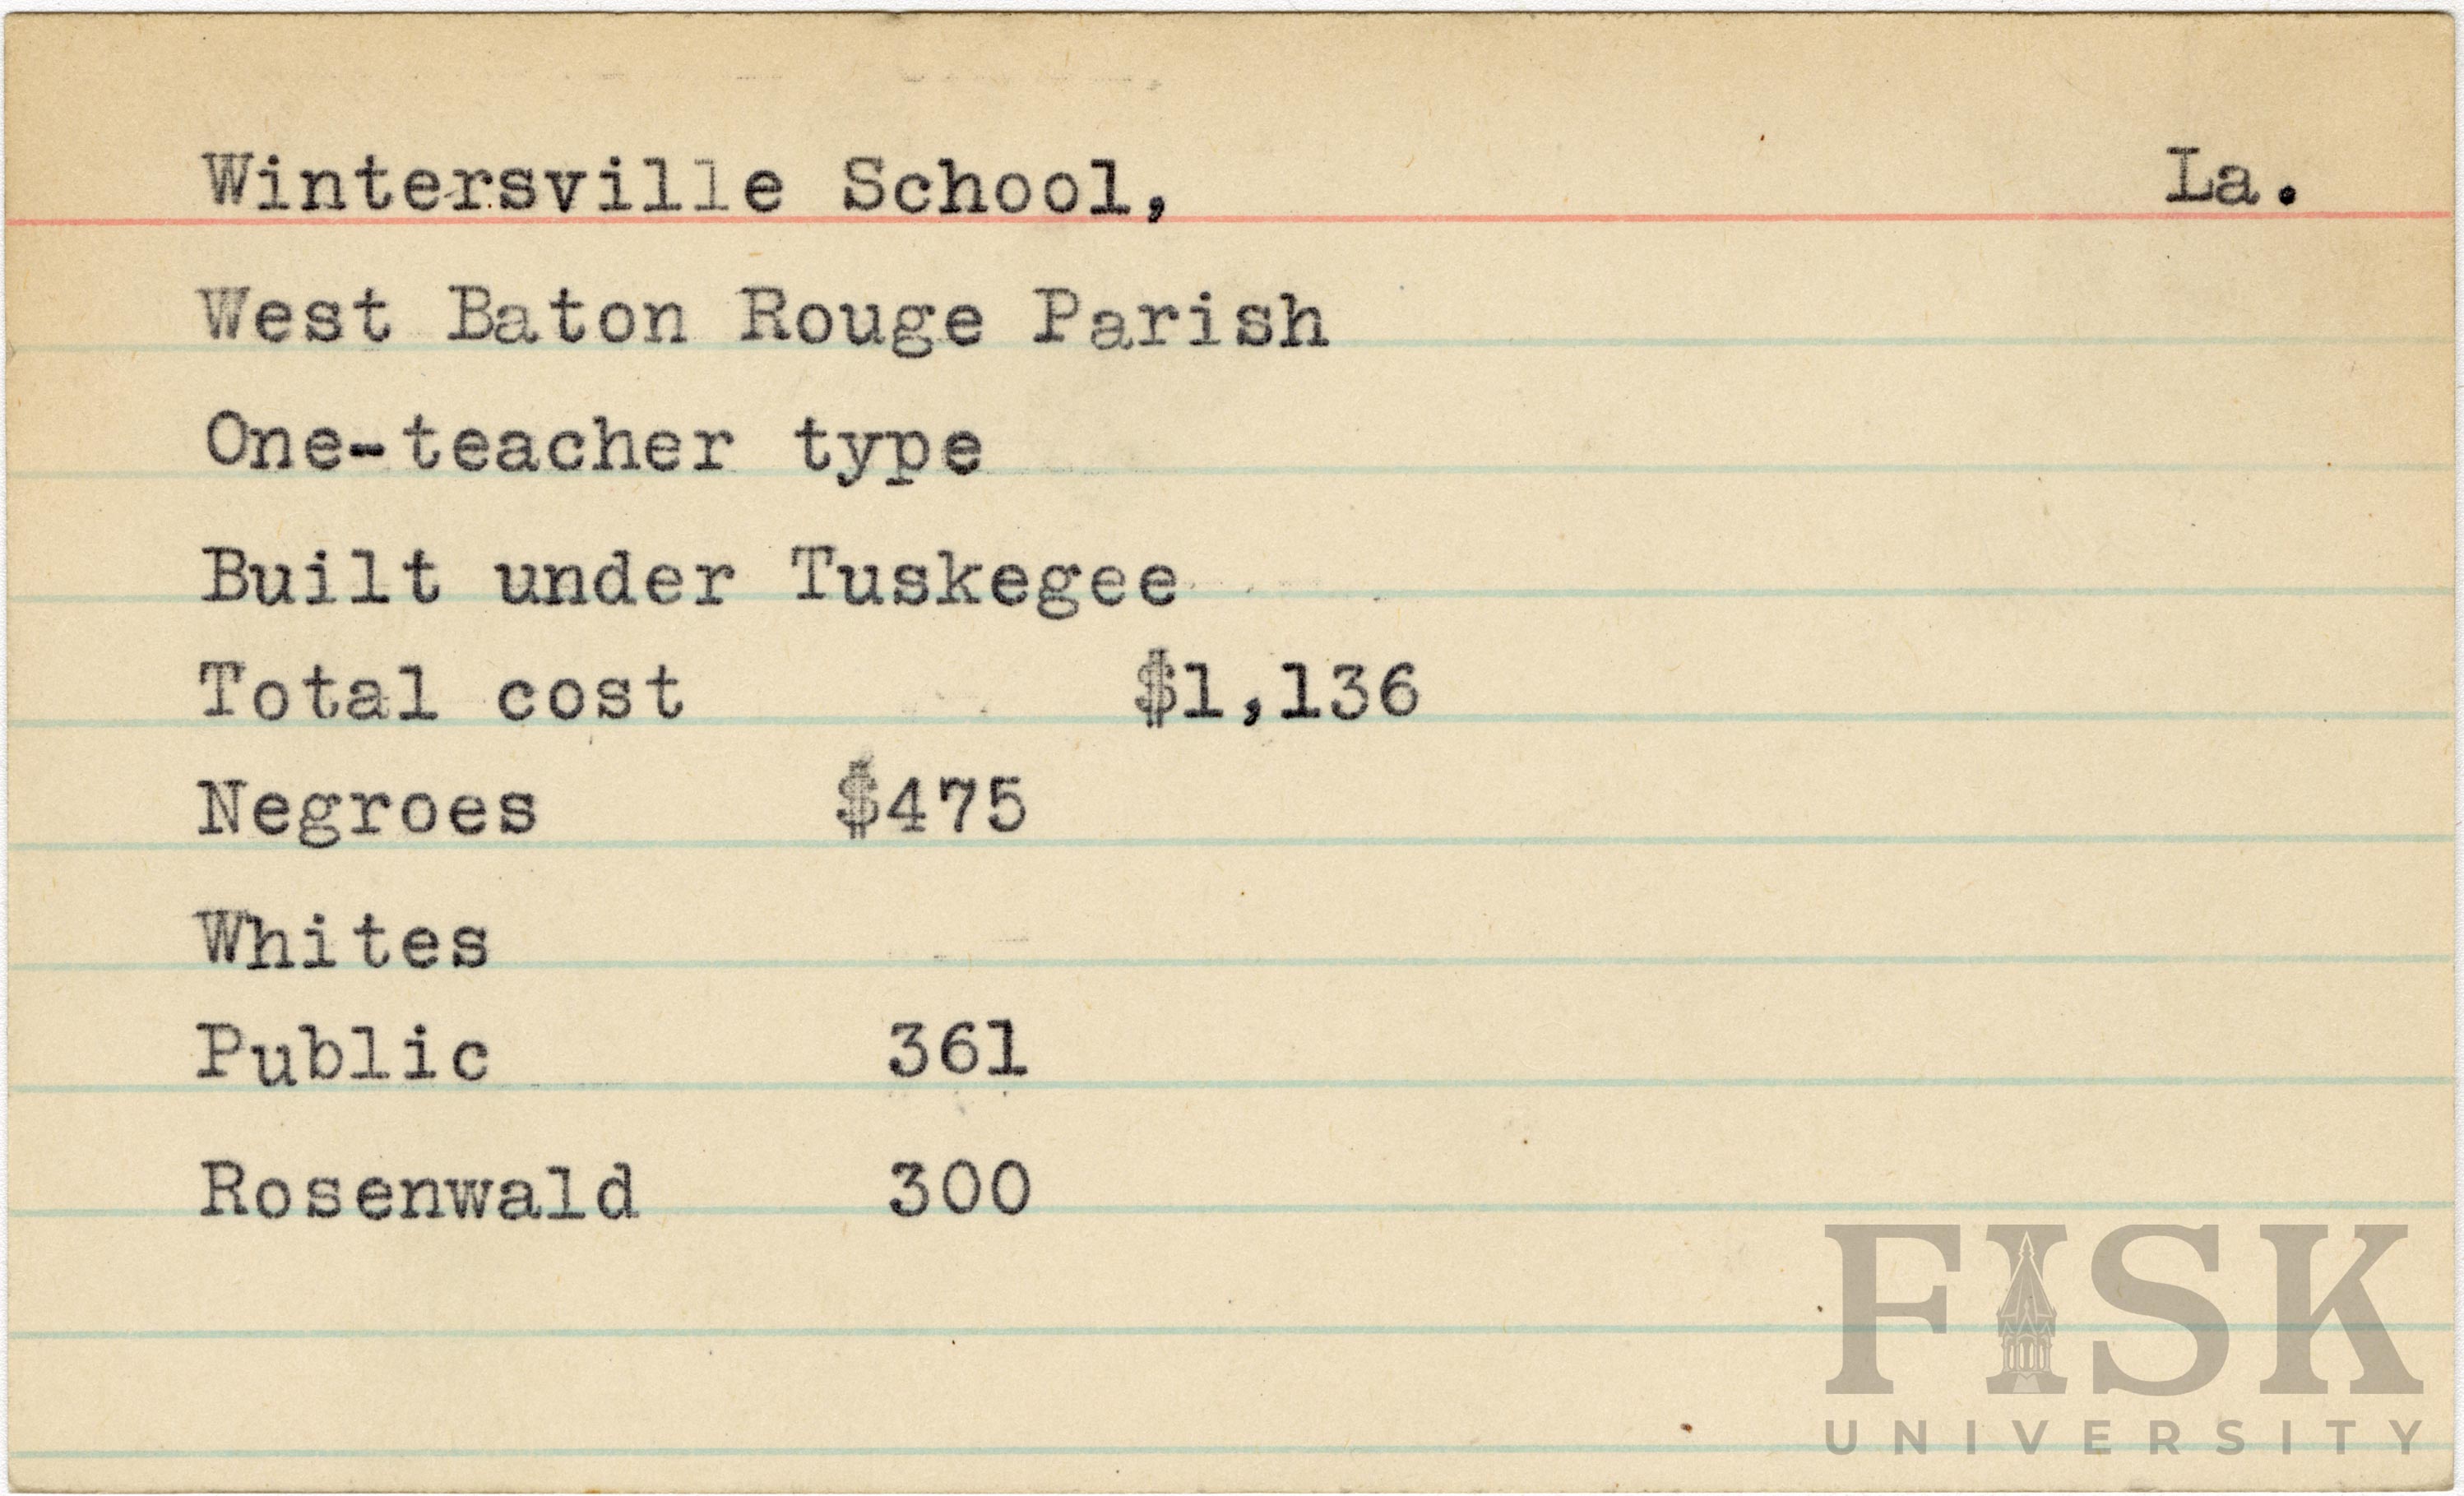 Wintersville School, La.
West Baton Rouge Parish
One-teacher type
Built under Tuskegee
Total cost $1,136
Negroes $475
Whites
Public 361
Rosenwald 300
FISK
UNIVERSITY